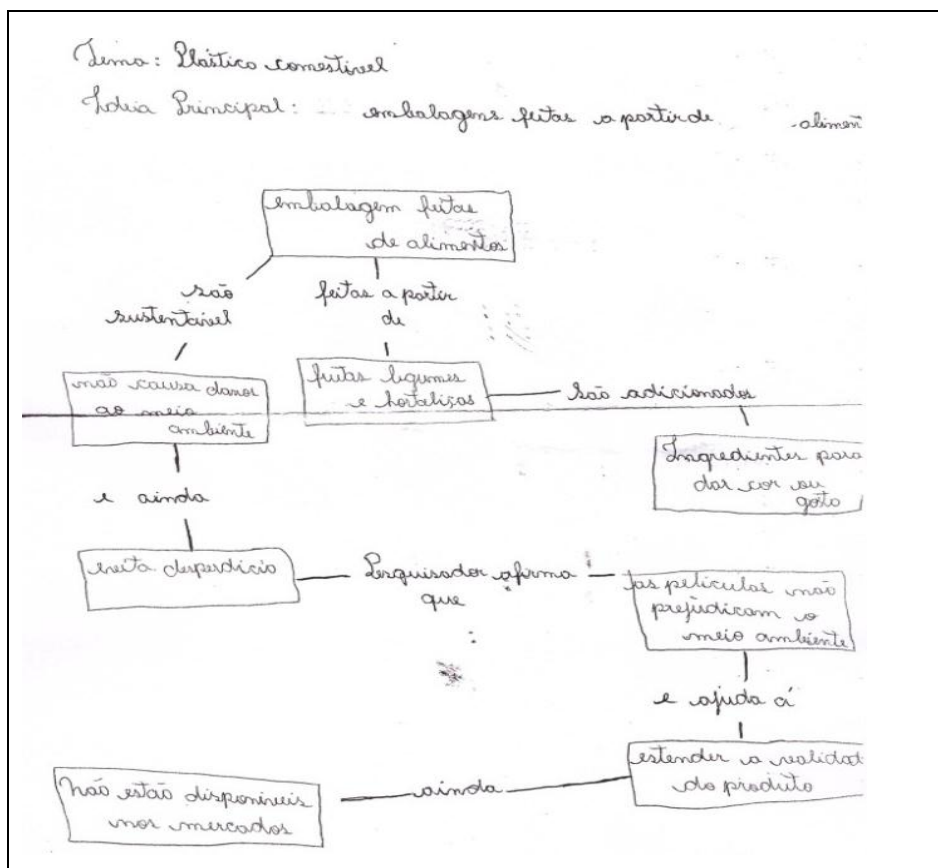 Tema: Plástico comestível
Ideia Principal: embalagens feitas a partir de alimen
embalagem feitas
de alimentos
são
sustentável
feitas a partir
de
não causa danos
ao meio
ambiente
frutas legumes
e hortaliças
são adicionados
Ingredientes para
dar cor ou
gosto
e ainda
evita desperdício
Pesquisador afirma
que
as películas não
prejudicam o
meio ambiente
e ajuda á
estender a
do produto
ainda
Não estão disponíveis
nos mercados